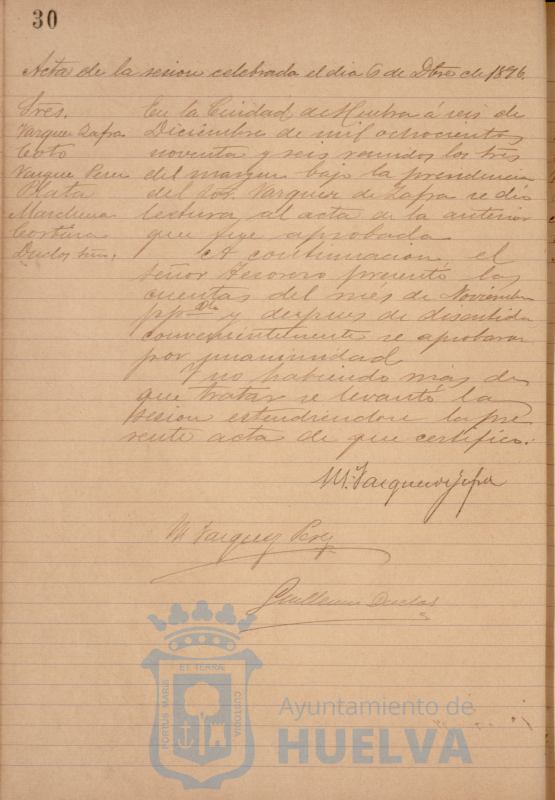 30
Acta de la sesion celebrada el dia 6 de Dbre de 1896.
Sres.
Vazquez Zafra
Coto
Vazquez Perez
Plata
Marchena
Cortina
Duclos Srio.
En la Ciudad de Huelva á seis de
Diciembre de mil ochocientos
noventa y seis reunidos los Sres
del margen bajo la presidencia
del Sor. Vazquez de Zafra se dió
lectura al acta de la anterior
que fue aprobada
A continuacion el
señor Tesorero presentó las
cuentas del més de Noviembre
ppdo y despues de discutida
convenientemente se aprobaron
por unanimidad
Y no habiendo mas de
que tratar se levantó la
sesion estendiendose la pre
sente acta de que certifico.
M. Vazquez de Zafra
M Vazquez Perez
Guillermo Duclos
ET TERRAE
PORTUS MARIS
CUSTODIA
Ayuntamiento de
HUELVA